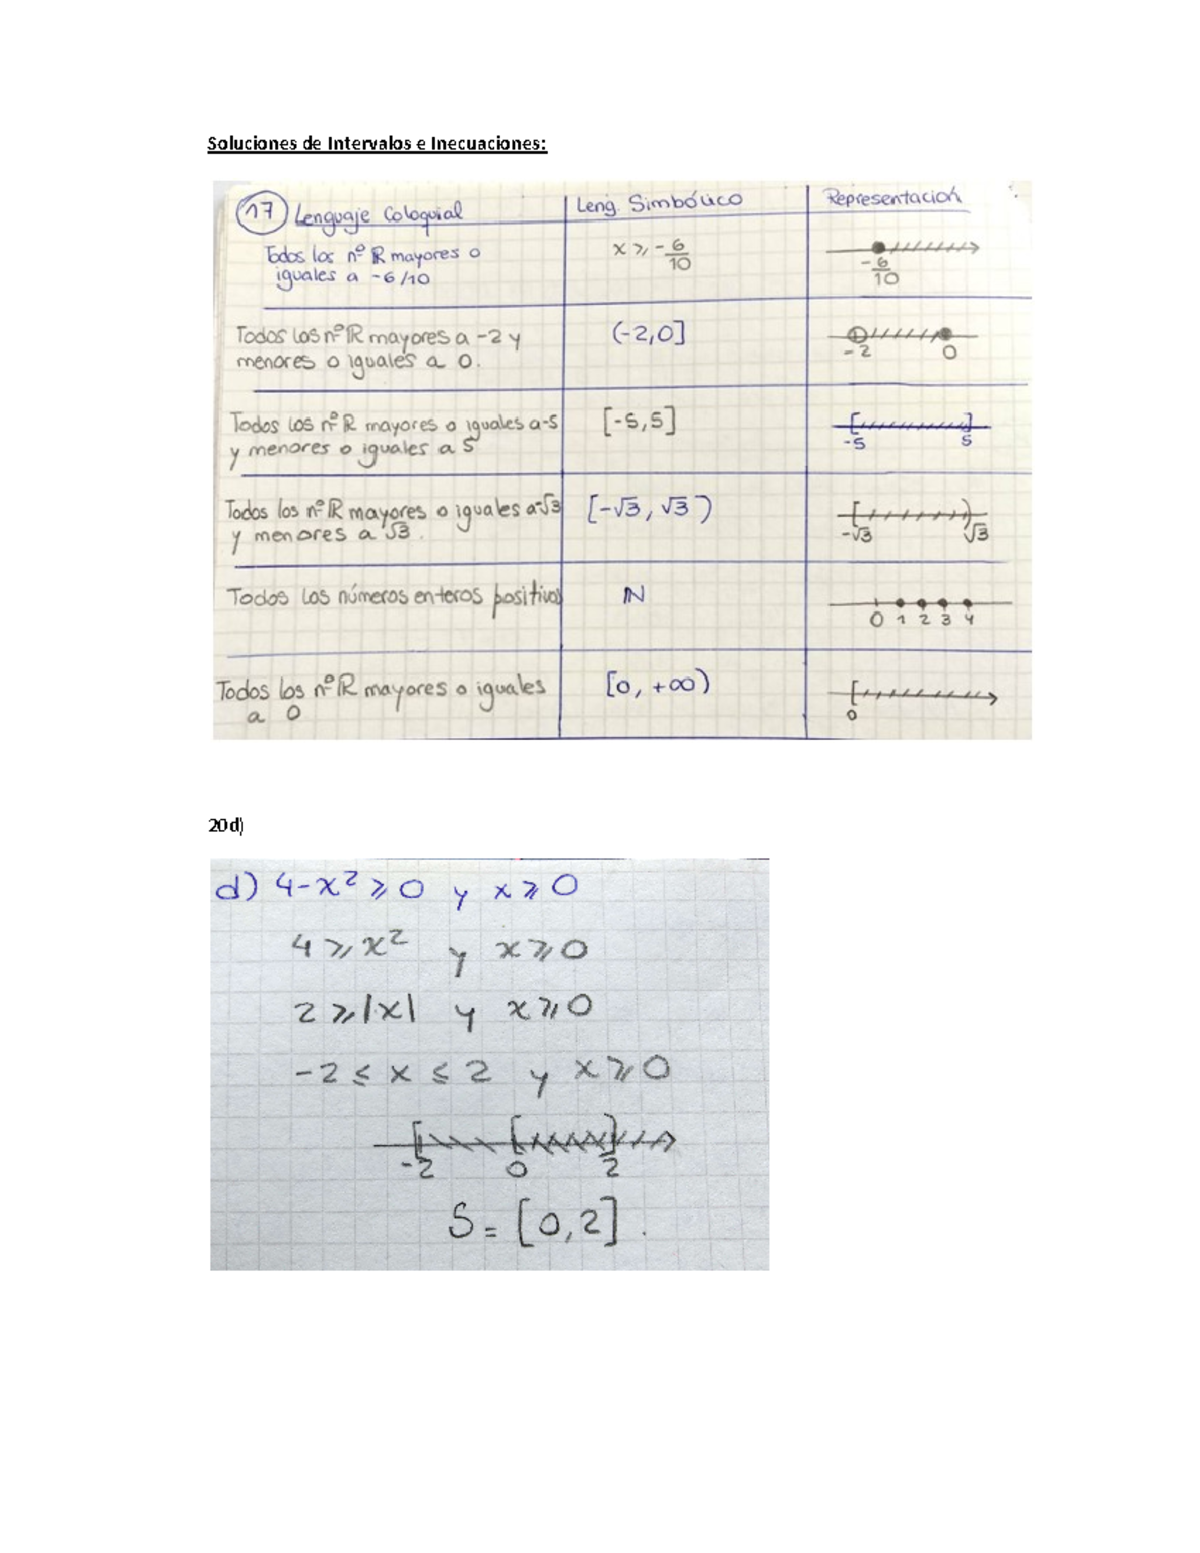 Soluciones de Intervalos e Inecuaciones:
17 Lenguaje Coloquial Leng. Simbólico Representación
Todos los nº ℝ mayores o
iguales a -6/10
x ⩾ -6/10
-6/10
Todos los nº ℝ mayores a -2 y
menores o iguales a 0.
(-2,0]
-2 0
Todos los nº ℝ mayores o iguales a -5
y menores o iguales a 5
[-5,5]
-5 5
Todos los nº ℝ mayores o iguales a -√3
y menores a √3.
[-√3, √3)
-√3 √3
Todos los números enteros positivos
ℕ
0 1 2 3 4
Todos los nº ℝ mayores o iguales
a 0
[0, +∞)
0
20d)
d) 4-x² ⩾ 0 y x ⩾ 0
4 ⩾ x² y x ⩾ 0
2 ⩾ |x| y x ⩾ 0
-2 ≤ x ≤ 2 y x ⩾ 0
-2 0 2
S = [0,2].